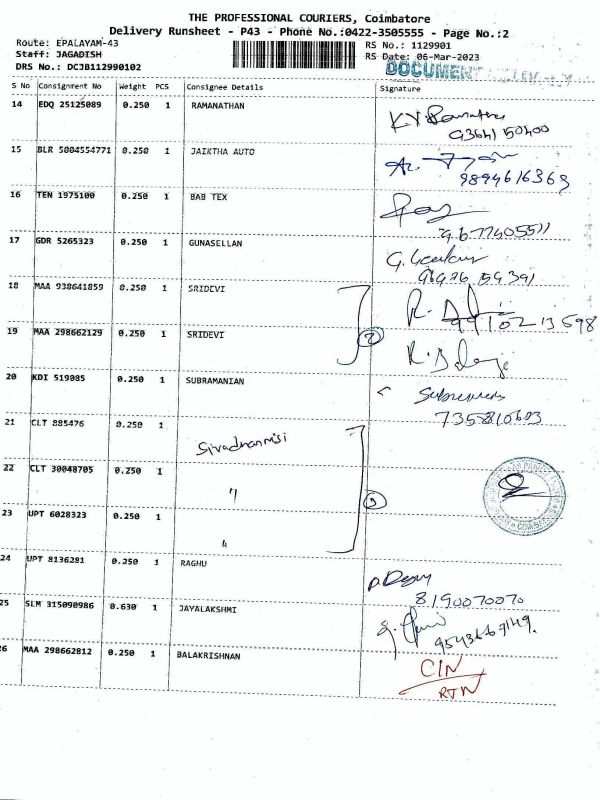 THE PROFESSIONAL COURIERS, Coimbatore
Delivery Runsheet - P43 - Phone No.:0422-3505555 - Page No.:2
Route: EPALAYAM-43 RS No.: 1129901
Staff: JAGADISH RS Date: 06-Mar-2023
DRS No.: DCJB112990102 DOCUMENT
S No Consignment No Weight PCS Consignee Details Signature
14 EDQ 25125089 0.250 1 RAMANATHAN
93641 50400
15 BLR 5004554771 0.250 1 JAIKTHA AUTO
9894616369
16 TEN 1975100 0.250 1 BAB TEX
9677405511
17 GDR 5265323 0.250 1 GUNASELLAN
18 MAA 938641859 0.250 1 SRIDEVI
19 MAA 298662129 0.250 1 SRIDEVI
2
20 KDI 519085 0.250 1 SUBRAMANIAN
7358410603
21 CLT 885476 0.250 1
22 CLT 30048705 0.250 1
"
23 UPT 6028323 0.250 1
"
24 UPT 8136281 0.250 1 RAGHU
8190070070
25 SLM 315090986 0.630 1 JAYALAKSHMI
26 MAA 298662812 0.250 1 BALAKRISHNAN
CIN
RTN